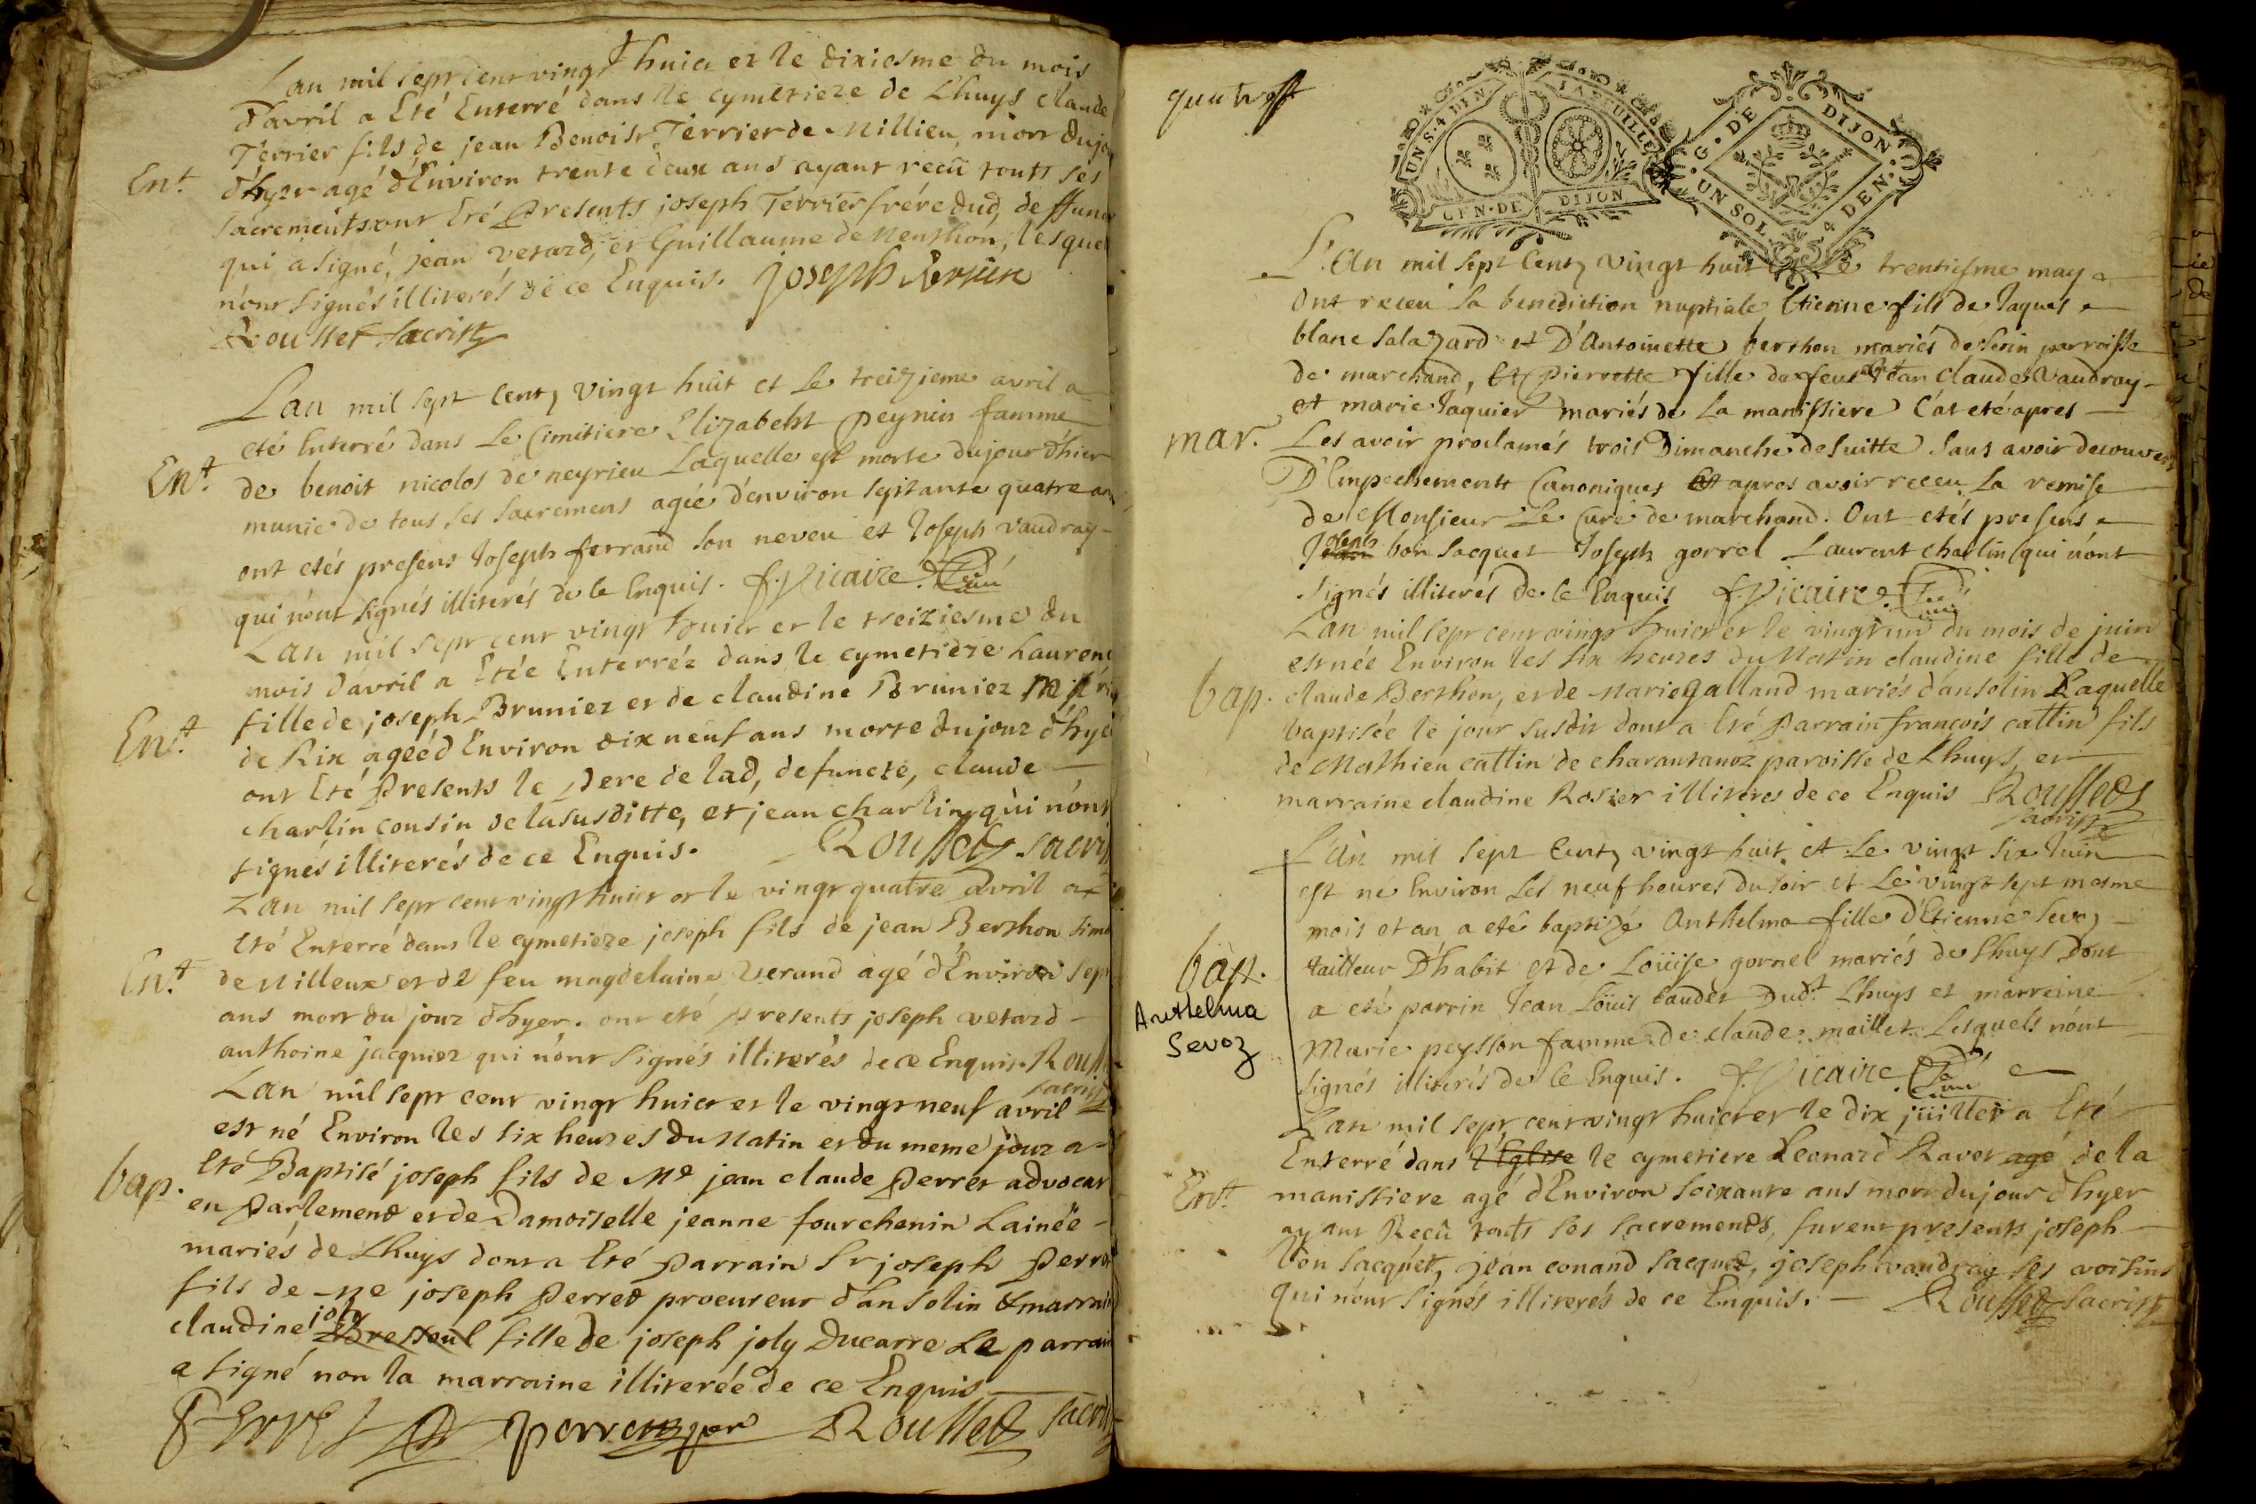 Lan mil sept cent vingt huict et le dixiesme du mois
d'avril a Eté Enterré dans le cymetiere de Lhuys claude
Terrier fils de jean Benoist Terrier de Millieu, mort du jou
Ent. d'hyer agé d'Environ trente deux ans ayant recû touts ses
sacrements ont Eté Presents joseph Terrier frére dud, deffunct
qui a signé, jean verard, et Guillaume de Menthon, lesquel
n'ont signés illiterés de ce Enquis. joseph terrier
Rousset sacrist
Lan mil sept cent vingt huit et le treizieme avril a
eté Enterré dans le Cimitiere Elizabeht peynin famme
Ent. de benoit nicolos de neyrieu Laquelle est morte du jour d'hier
munie de tous ses sacremens agée d'environ septante quatre an
ont etés presens Joseph ferrand son neveu et Joseph vaudray
qui n'ont signés illiterés de ce Enquis. f. Vicaire
Lan mil sept cent vingt huict et le treiziesme du
mois d'avril a Etée Enterrée dans le cymetiere Laurenc
fille de joseph Brunier et de claudine Brunier
Ent. de Rix agéé d'Environ dix neuf ans morte du jour d'hye
ont Eté Presents le pere de lad, defuncte, claude
charlin cousin de la susditte, et jean charlin qui n'ont
signés illiterés de ce Enquis. Rousset sacrist
Lan mil sept cent vingt huict et le vingt quatre avril a
Eté Enterré dans le cymetiere joseph fils de jean Berthon
Ent. de Milleux et de feu magdelaine verand agé d'Environ sept
ans mort du jour d'hyer. ont eté presents joseph verard
anthoine jacquier qui n'ont signés illiterés de ce Enquis. Rouss
sacrist
Lan mil sept cent vingt huict et le vingt neuf avril
est né Environ les six heures du Matin et du meme jour a
bap. Eté Baptisé joseph fils de Me jean claude Perret advocat
en Parlement et de Damoiselle jeanne fourchenin Lainée
mariés de Lhuys dont a Eté Parrain Sr joseph Perret
fils de Me joseph Perret procureur d'ansolin & marrain
joly
claudine fille de joseph joly Ducarre Le parrain
a signé non la marraine illiterée de ce Enquis
Perret perret Rousset sacrist
quatre
UN S. 4 DEN. LA FEUILLE
GEN. DE DIJON
G. DE DIJON
UN SOL 4 DEN.
L'An mil sept Cent vingt huit et Le trentiesme may
Ont receu la benediction nuptiale Etienne fils de Jaques
blanc salazard et D'Antoinette berthon mariés de serin parroisse
de marchand, Et pierrette fille de feu Claude vaudray
et marie Jaquier mariés de La manissiere C'at eté apres
mar. Les avoir proclamés trois Dimanche de suitte sans avoir decouvert
D'Empechements Canoniques Et apres avoir receu La remise
de Monsieur Le Curé de marchand. Ont etés presens
Joseph bon sacquet Joseph gorrel Laurent charlin qui n'ont
signés illiterés De ce Enquis f. Vicaire
Lan mil sept cent vingt huict et le vingt un du mois de juin
est née Environ les six heures du Matin claudine fille de
bap. claude Berthon, et de Marie Galland mariés d'ansolin Laquelle
baptisée le jour susdit dont a Eté Parrain françois cattin fils
de Mathieu cattin de charantanoz paroisse de Lhuys, et
marraine claudine Rosier illiteres de ce Enquis Rousset
sacrist
L'an mil sept Cent vingt huit et Le vingt six Juin
est né Environ Les neuf heures du soir et Le vingt sept mesme
mois et an a eté baptizé Anthelma fille d'Etienne Sevoz
bap. tailleur D'habit et de Loüise gorrel mariés de Lhuys Dont
Anthelma a eté parrin Jean Loüis baudet Dudt Lhuys et marreine
Sevoz Marie peysson famme de claude maillet Lesquels n'ont
signés illiterés de Ce Enquis. f. Vicaire
Lan mil sept cent vingt huict et le dix juillet a Eté
Enterré dans l'Eglise le cymetiere Leonard Ravet agé de la
Ent. manissiere agé d'Environ soixante ans mort du jour d'hyer
ayant Recû touts ses sacrements, furent presents joseph
bon sacquet, jean conand sacquet, joseph vaudray ses voisins
qui n'ont signés illiterés de ce Enquis. Rousset sacrist